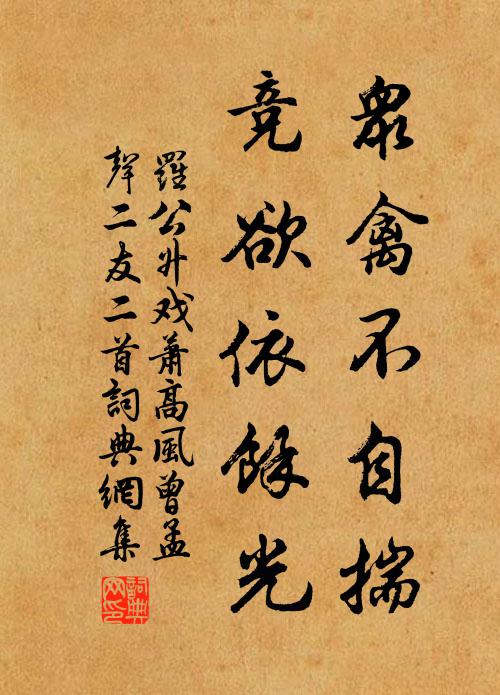 眾禽不自揣
竞欲依餘光
羅公升戏蕭高風曾孟
聲二友二首詞典網集
詞典网印